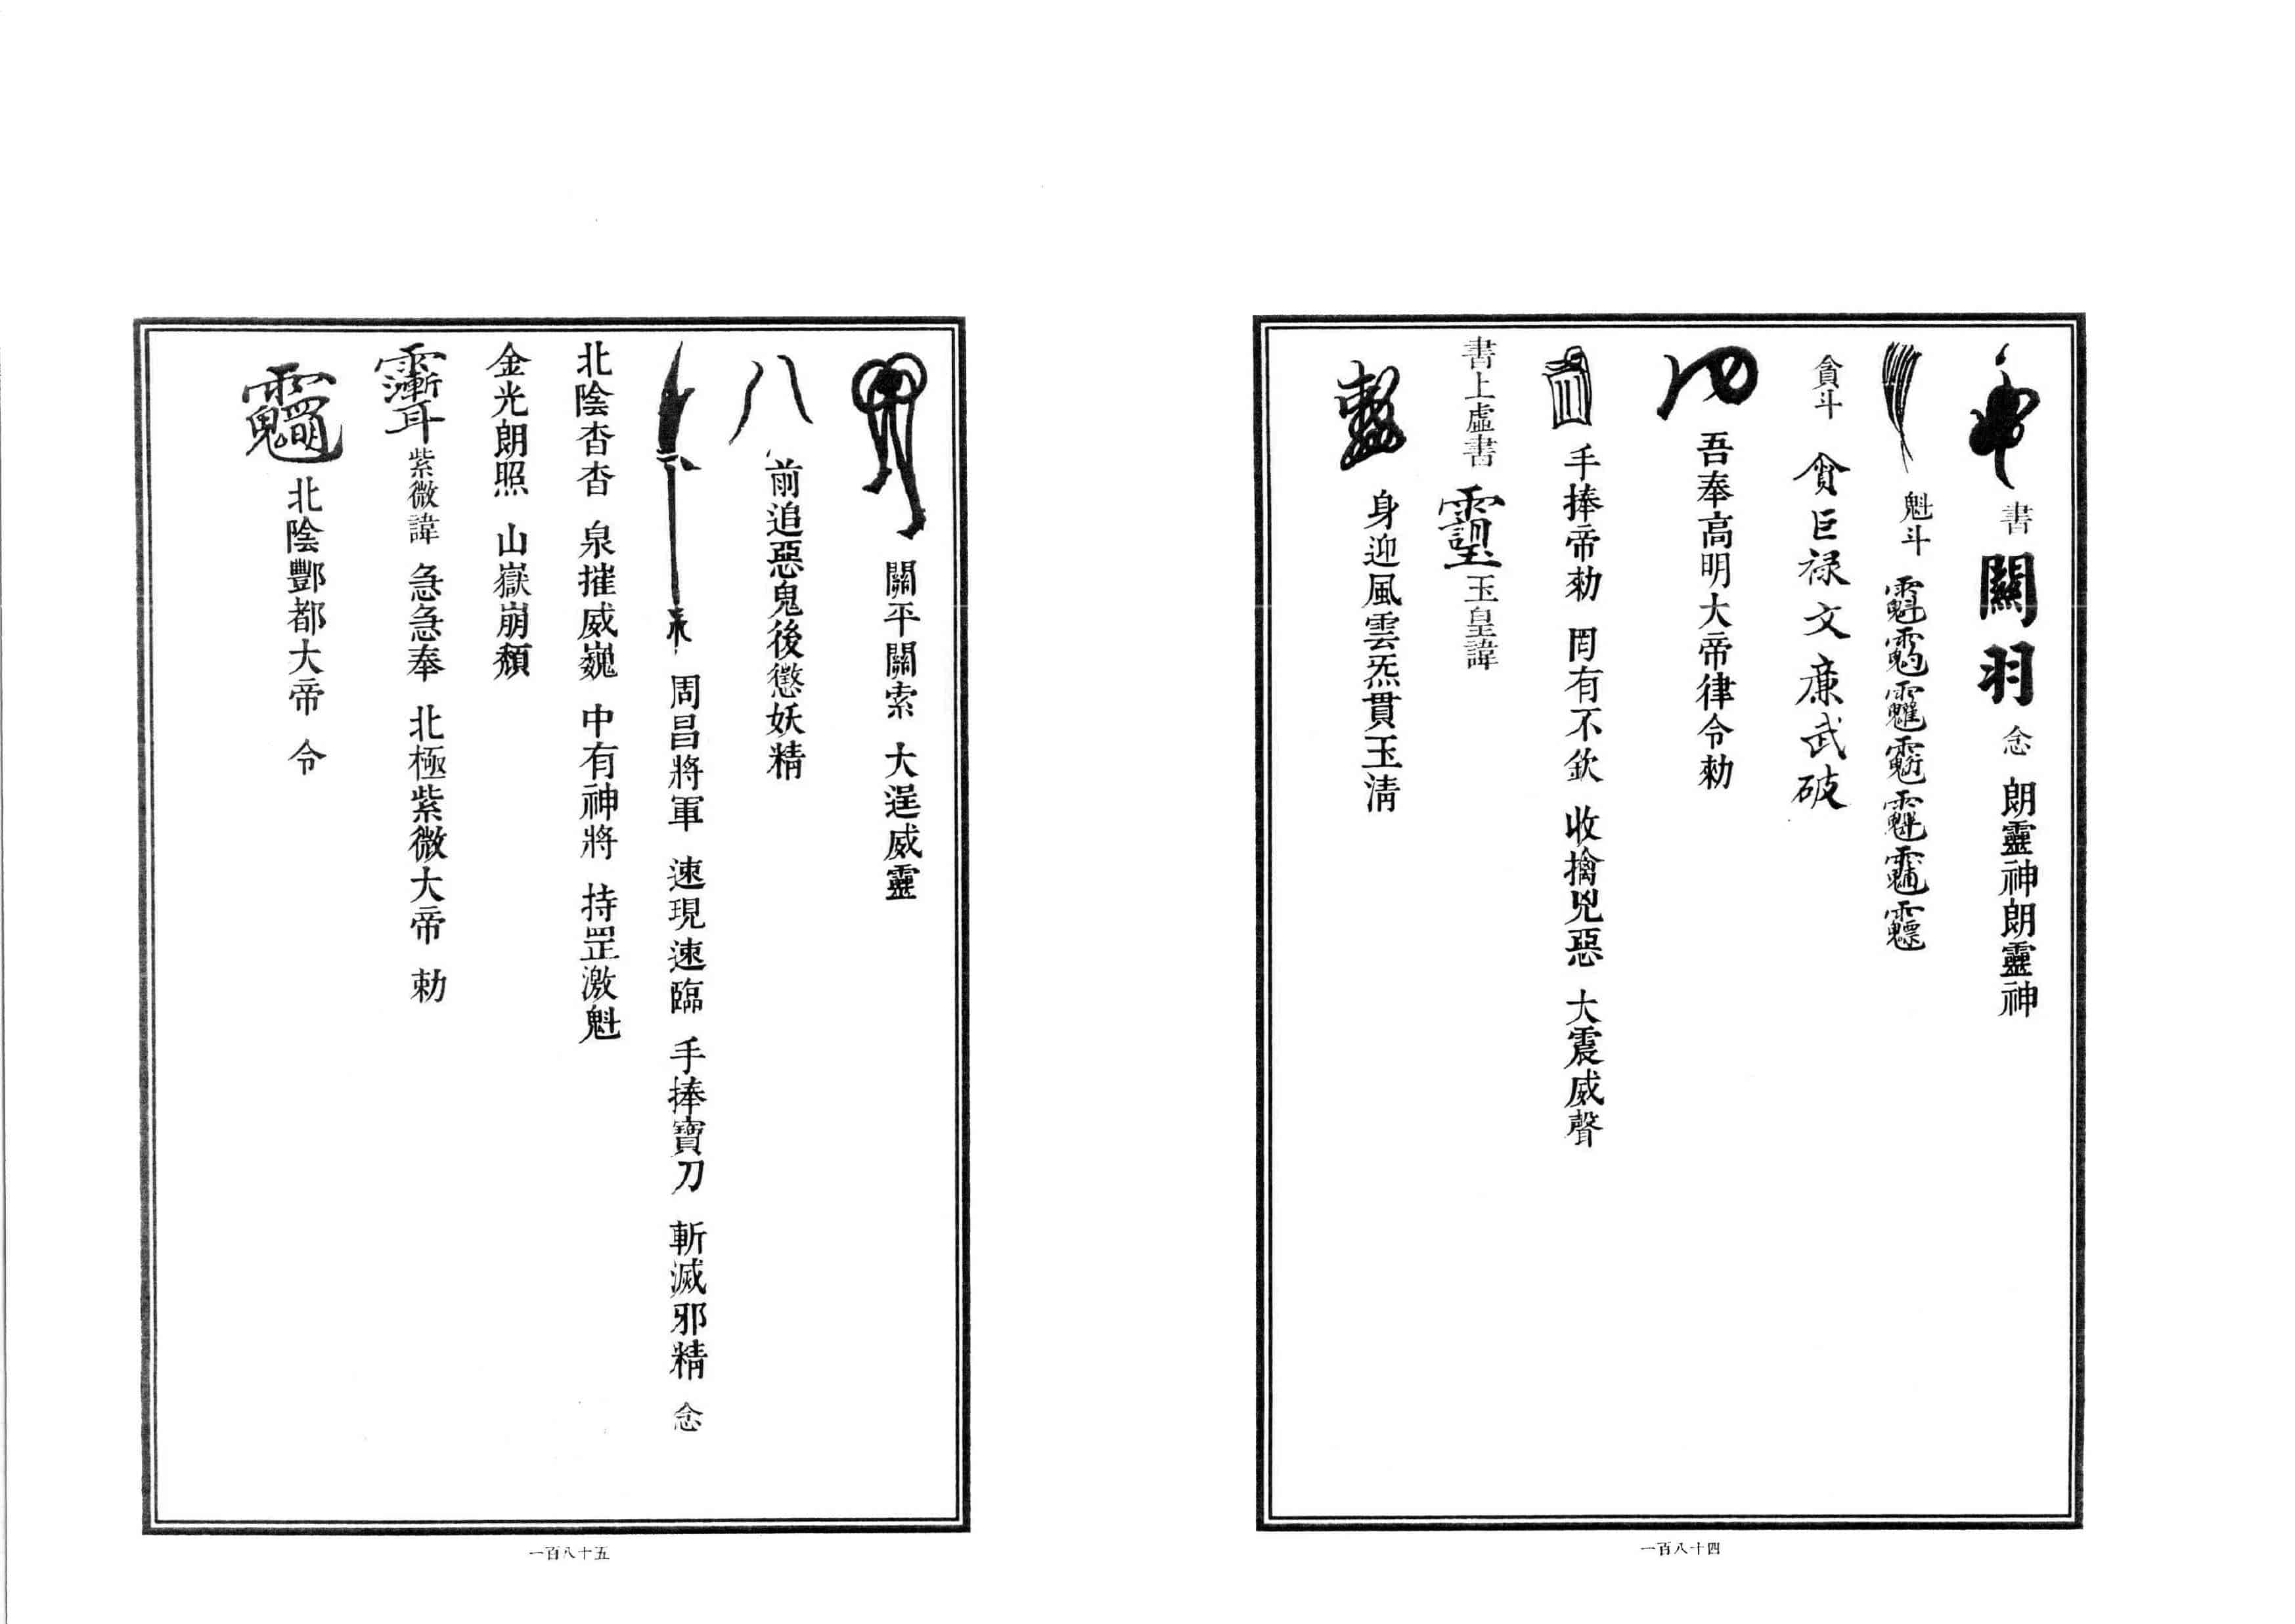 書 關羽 念 朗靈神朗靈神
魁斗
貪斗 貪巨祿文廉武破
吾奉高明大帝律令勑
手捧帝勑 罔有不欽 收擒兇惡 大震威聲
書上虛書 玉皇諱
身迎風雲炁貫玉清
一百八十四
關平關索 大逞威靈
前追惡鬼後懲妖精
周昌將軍 速現速臨 手捧寶刀 斬滅邪精 念
北陰杳杳 泉摧威巍 中有神將 持罡激魁
金光朗照 山嶽崩頹
紫微諱 急急奉 北極紫微大帝 勅
北陰酆都大帝 令
一百八十五